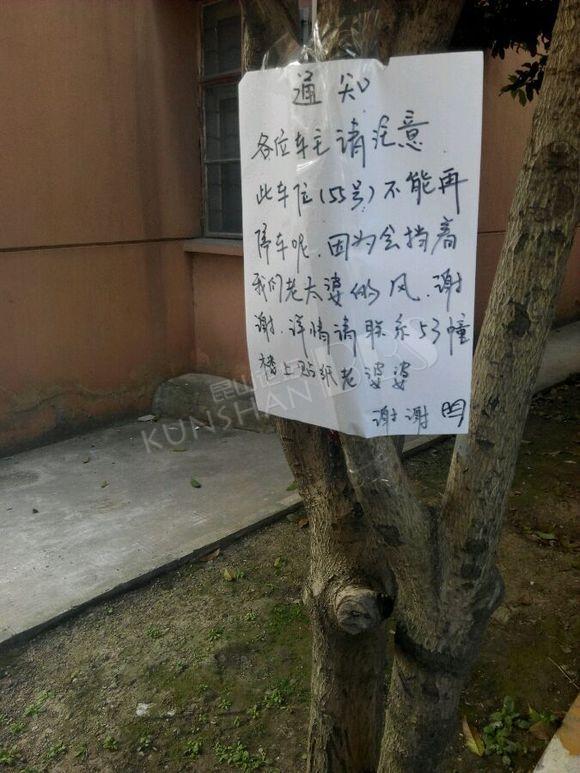 通知
各位车主请注意
此车位(55号)不能再
停车呢.因为会挡着
我们老太婆的风.谢
谢.详情请联系53幢
楼上贴纸老婆婆
谢谢
昆山论坛BBS
KUNSHAN